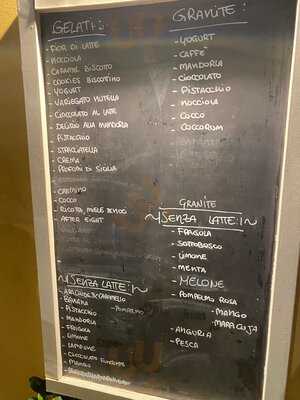 GELATI:
- FIOR DI LATTE
- NOCCIOLA
- CARAMEL BISCOTTO
- COOKIES BISCOTTINO
- YOGURT
- VARIEGATO NUTELLA
- CIOCCOLATO AL LATTE
- DELIRIO ALLA MANDORLA
- PISTACCHIO
- STRACCIATELLA
- CREMA
- PROFUMI DI SICILIA
- COCCO
- RICOTTA MIELE
- AFTER EIGHT
~SENZA LATTE:~
- BANANA
- PISTACCHIO
- POMPELMO
- MANDORLA
- FRAGOLA
- LIMONE
- LAMPONE
- CIOCCOLATO FONDENTE
- MANGO
GRANITE:
- YOGURT
- CAFFE'
- MANDORLA
- CIOCCOLATO
- PISTACCHIO
- NOCCIOLA
- COCCO
- COCCORUM
GRANITE
~SENZA LATTE:~
- FRAGOLA
- SOTTOBOSCO
- LIMONE
- MENTA
- MELONE
- POMPELMO ROSA
- MANGO
- MARACUJA
- ANGURIA
- PESCA